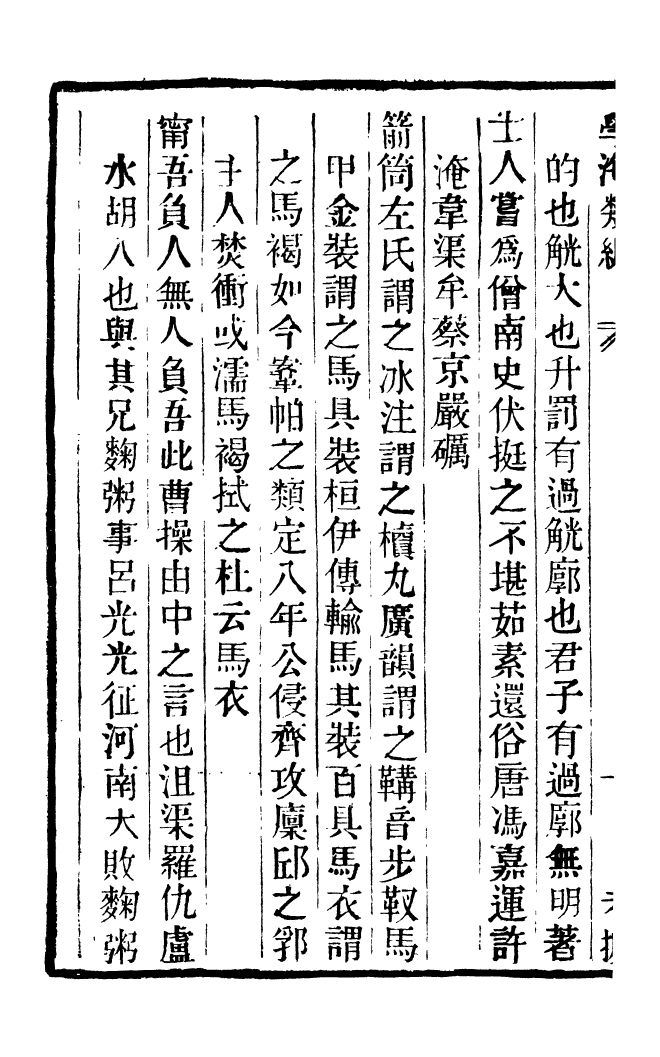 學海類編
的也觥大也升罰有過觥廓也君子有過廓無明著
士人嘗為僧南史伏挺之不堪茹素還俗唐馮嘉運許
淹韋渠牟蔡京嚴礪
箭筒左氏謂之冰注謂之櫝丸廣韻謂之鞴音步靫馬
甲金裝謂之馬具裝桓伊傳輸馬其裝百具馬衣謂
之馬褐如今鞌帕之類定八年公侵齊攻廩邱之郛
主人焚衝或濡馬褐拭之杜云馬衣
甯吾負人無人負吾此曹操由中之言也沮渠羅仇盧
水胡人也與其兄麴粥事呂光光征河南大敗麴粥